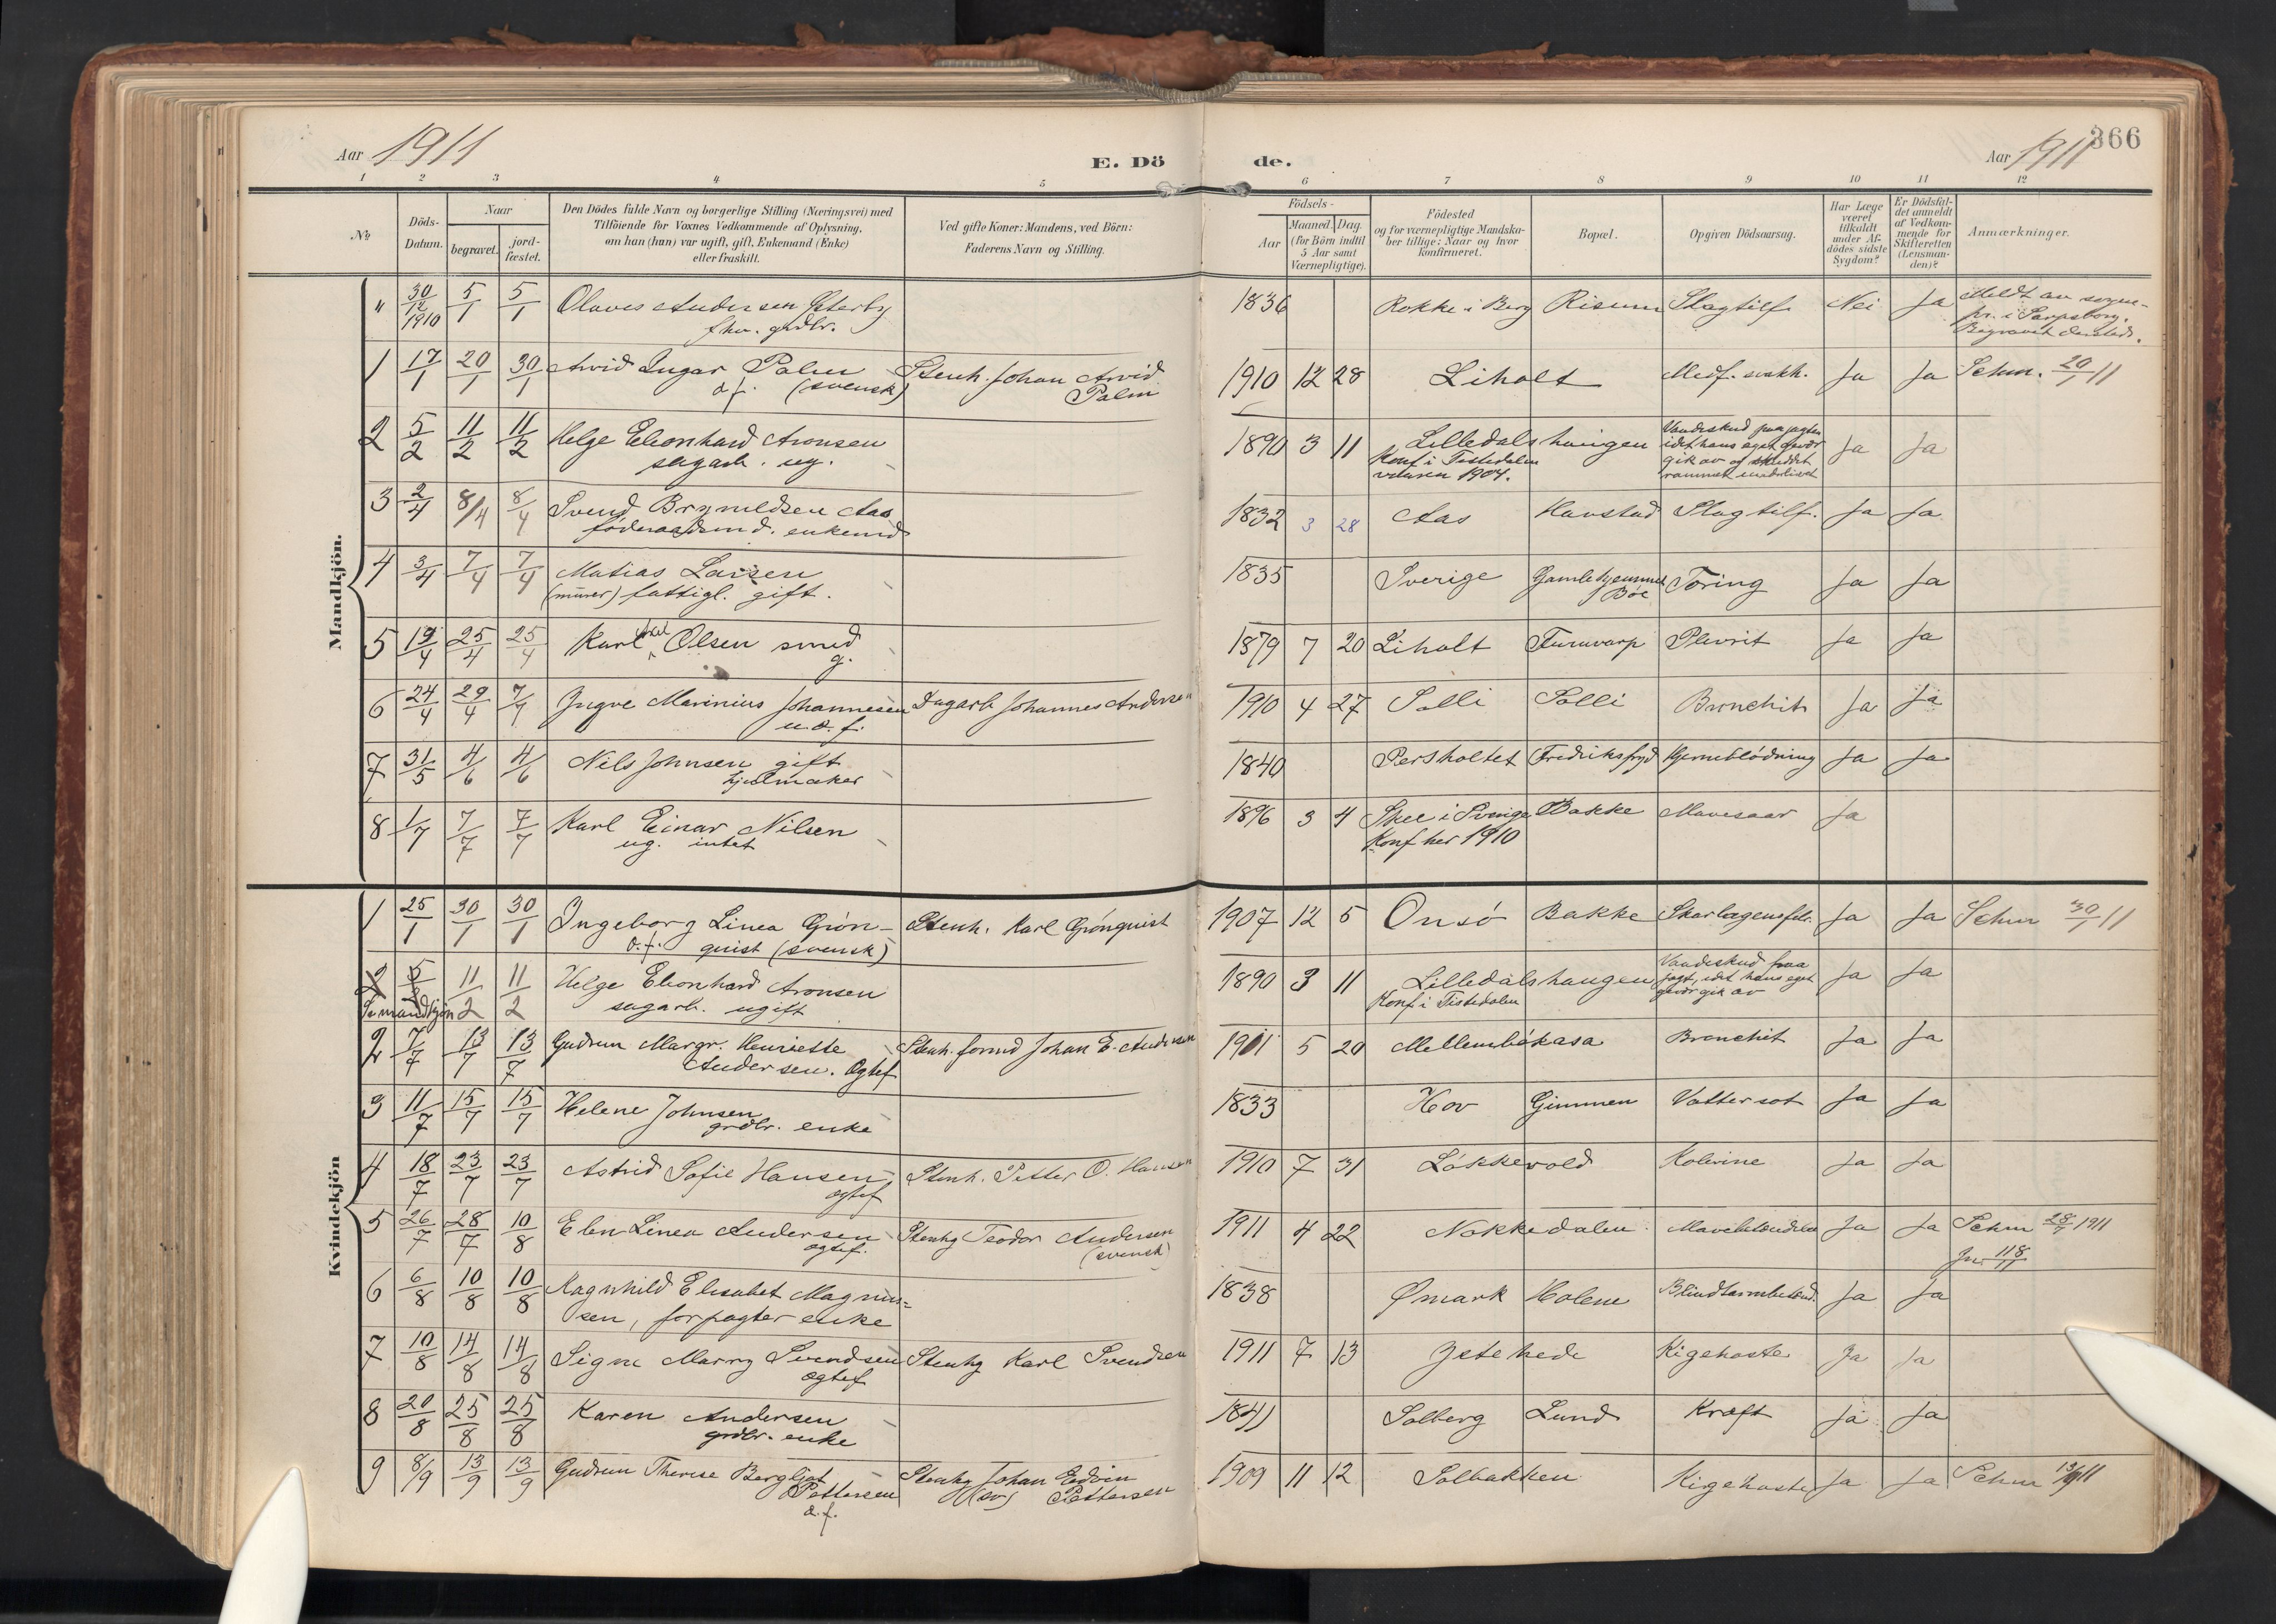 Aar 1911
E. Dö
de.
Aar 1911
366
1 2 3 4 5 6 7 8 9 10 11 12
No
Döds-
Datum.
Naar
begravet.
jord-
fæstet.
Den Dödes fulde Navn og borgerlige Stilling (Næringsvei) med
Tilföiende for Voxnes Vedkommende af Oplysning,
om han (hun) var ugift, gift, Enkemand (Enke)
eller fraskilt.
Ved gifte Koner: Mandens, ved Börn:
Faderens Navn og Stilling.
Födsels-
Aar
Maaned. Dag.
(for Börn indtil
5 Aar samt
Værnepligtige).
Födested
og for værnepligtige Mandska-
ber tillige: Naar og hvor
konfirmeret.
Bopæl.
Opgiven Dödsaarsag.
Har Læge
været
tilkaldt
under Af-
dödes sidste
Sygdom?
Er Dödsfal-
det anmeldt
af Vedkom-
mende for
Skifteretten
(Lensman-
den)?
Anmærkninger.
Mandkjön.
" 30/12 1910 5/1 5/1 Olaves Andersen Østerby 1836 Rokke i Berg Risum Slagtilf. Nei Ja Meldt av sogne-
fhv. grdbr. pr. i Sarpsborg.
Begravet dersteds.
1 17/1 20/1 30/1 Arvid Ingar Palm Stenh. Johan Arvid 1910 12 28 Liholt Medf. svakh. Ja Ja Schm. 20/1 11
d.f. (svensk) Palm
2 5/2 11/2 11/2 Helge Eleonhard Aronsen 1890 3 11 Lilledalshaugen Vaadeskud paa jagten Ja Ja
sagarb. ug. Konf i Tistedalen idet hans eget gevær
vaaren 1904. gik av og skuddet
rammet underlivet
3 2/4 8/4 8/4 Svend Brynildsen Aas 1832 3 28 Aas Havstad Slagtilf. Ja Ja
føderaadsmd. enkemd
4 3/4 7/4 7/4 Matias Larsen 1835 Sverige Gamlehjemmet Tæring Ja Ja
(murer) fattigl. gift. Bøe
5 19/4 25/4 25/4 Karl Axel Olsen smed 1879 7 20 Liholt Furuvarp Plevrit Ja Ja
g.
6 24/4 29/4 7/4 Yngve Marinius Johannesen Dagarb Johannes Andersen 1910 4 27 Solli Solli Bronchit Ja Ja
u.æ.f.
7 31/5 4/6 4/6 Nils Johnsen gift 1840 Persholtet Fredriksfryd Hjerneblødning Ja Ja
hjulmaker
8 1/7 7/7 7/7 Karl Einar Nilsen 1896 3 4 Skee i Sverige Bakke Mavesaar Ja
ug. intet Konf her 1910
Kvindekjön
1 25/1 30/1 30/1 Ingeborg Linea Grøn- Stenh. Karl Grønquist 1907 12 5 Onsø Bakke Skarlagensfeb. Ja Ja Schm 30/1 11
æ.f. quist (svensk)
2 5/2 11/2 11/2 Helge Eleonhard Aronsen 1890 3 11 Lilledalshaugen Vaadeskud paa Ja Ja
Se mandkjøn sagarb. ugift Konf i Tistedalen jagt, idet hans eget
gevær gik av
2 7/7 13/7 13/7 Gudrun Margr. Henriette Stenh. formd Johan E. Andersen 1911 5 20 Mellembøkasa Bronchit Ja Ja
Andersen. Ogtef
3 11/7 15/7 15/7 Helene Johnsen 1833 Hov Gimmen Vattersot Ja Ja
grdbr. enke
4 18/7 23/7 23/7 Astrid Sofie Hansen Stenh. Petter O. Hansen 1910 7 31 Løkkevold Kolerine Ja Ja
ogtef
5 26/7 28/7 10/8 Elen Linea Andersen Stenhg Teodor Andersen 1911 4 22 Nokkedalen Ja Ja Schm 28/7 1911
ogtef. (svensk) Jn. 118/11
6 6/8 10/8 10/8 Ragnhild Elisabet Magnus- 1838 Ømark Holene Blindtarmbetænd. Ja Ja
sen, forpagter enke
7 10/8 14/8 14/8 Signe Marry Svendsen Stenhg Karl Svendsen 1911 7 13 Jetehede Kigehoste Ja Ja
ogtef
8 20/8 25/8 25/8 Karen Andersen 1841 Solberg Lund Kræft Ja Ja
grdbr. enke
9 8/9 13/9 13/9 Gudrun Therese Bergljot Stenhg Johan Edvin 1909 11 12 Solbakken Kigehoste Ja Ja Schm 13/9 11
Pettersen (sv) Pettersen
æ.f.